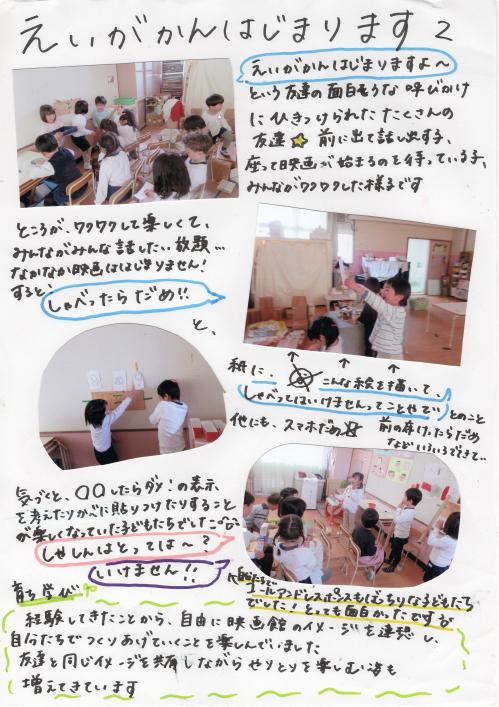 えいがかんはじまります 2
えいがかんはじまりますよ〜
という友達の面白そうな呼びかけ
にひきつけられたたくさんの
友達☆ 前に出て話し出す子、
座って映画が始まるのを待っている子、
みんながワクワクした様子です
ところが、ワクワクして楽しくて、
みんながみんな話したい放題…
なかなか映画ははじまりません!
すると、
しゃべったらだめ!!
と、
紙に、 こんな絵を描いて、
しゃべってはいけませんってことやで とのこと
他にも、スマホだめ 前の席けったらだめ
などいろいろでてきて…
気づくと、〇〇したらダメ!の表示
を考えたりかべに貼りつけたりすること
が楽しくなっていた子どもたちでした
しゃしんはとっては〜?
いけません!!
コールアンドレスポンスもばっちりな子どもたち
でした!とっても面白かったです
育ち学び
経験してきたことから、自由に映画館のイメージを連想し、
自分たちでつくりあげていくことを楽しんでいました
友達と同じイメージを共有しながらやりとりを楽しむ姿も
増えてきています